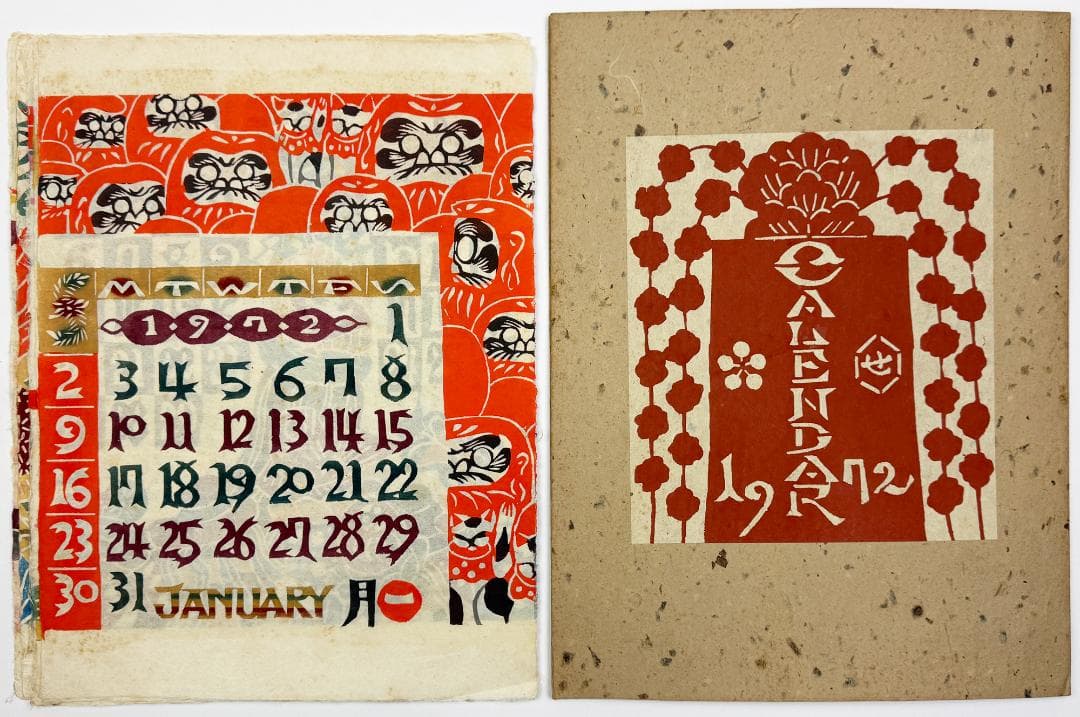 M T W T F S
1972 1
2 3 4 5 6 7 8
9 10 11 12 13 14 15
16 17 18 19 20 21 22
23 24 25 26 27 28 29
30 31 JANUARY 一月
CALENDAR
せ
1972